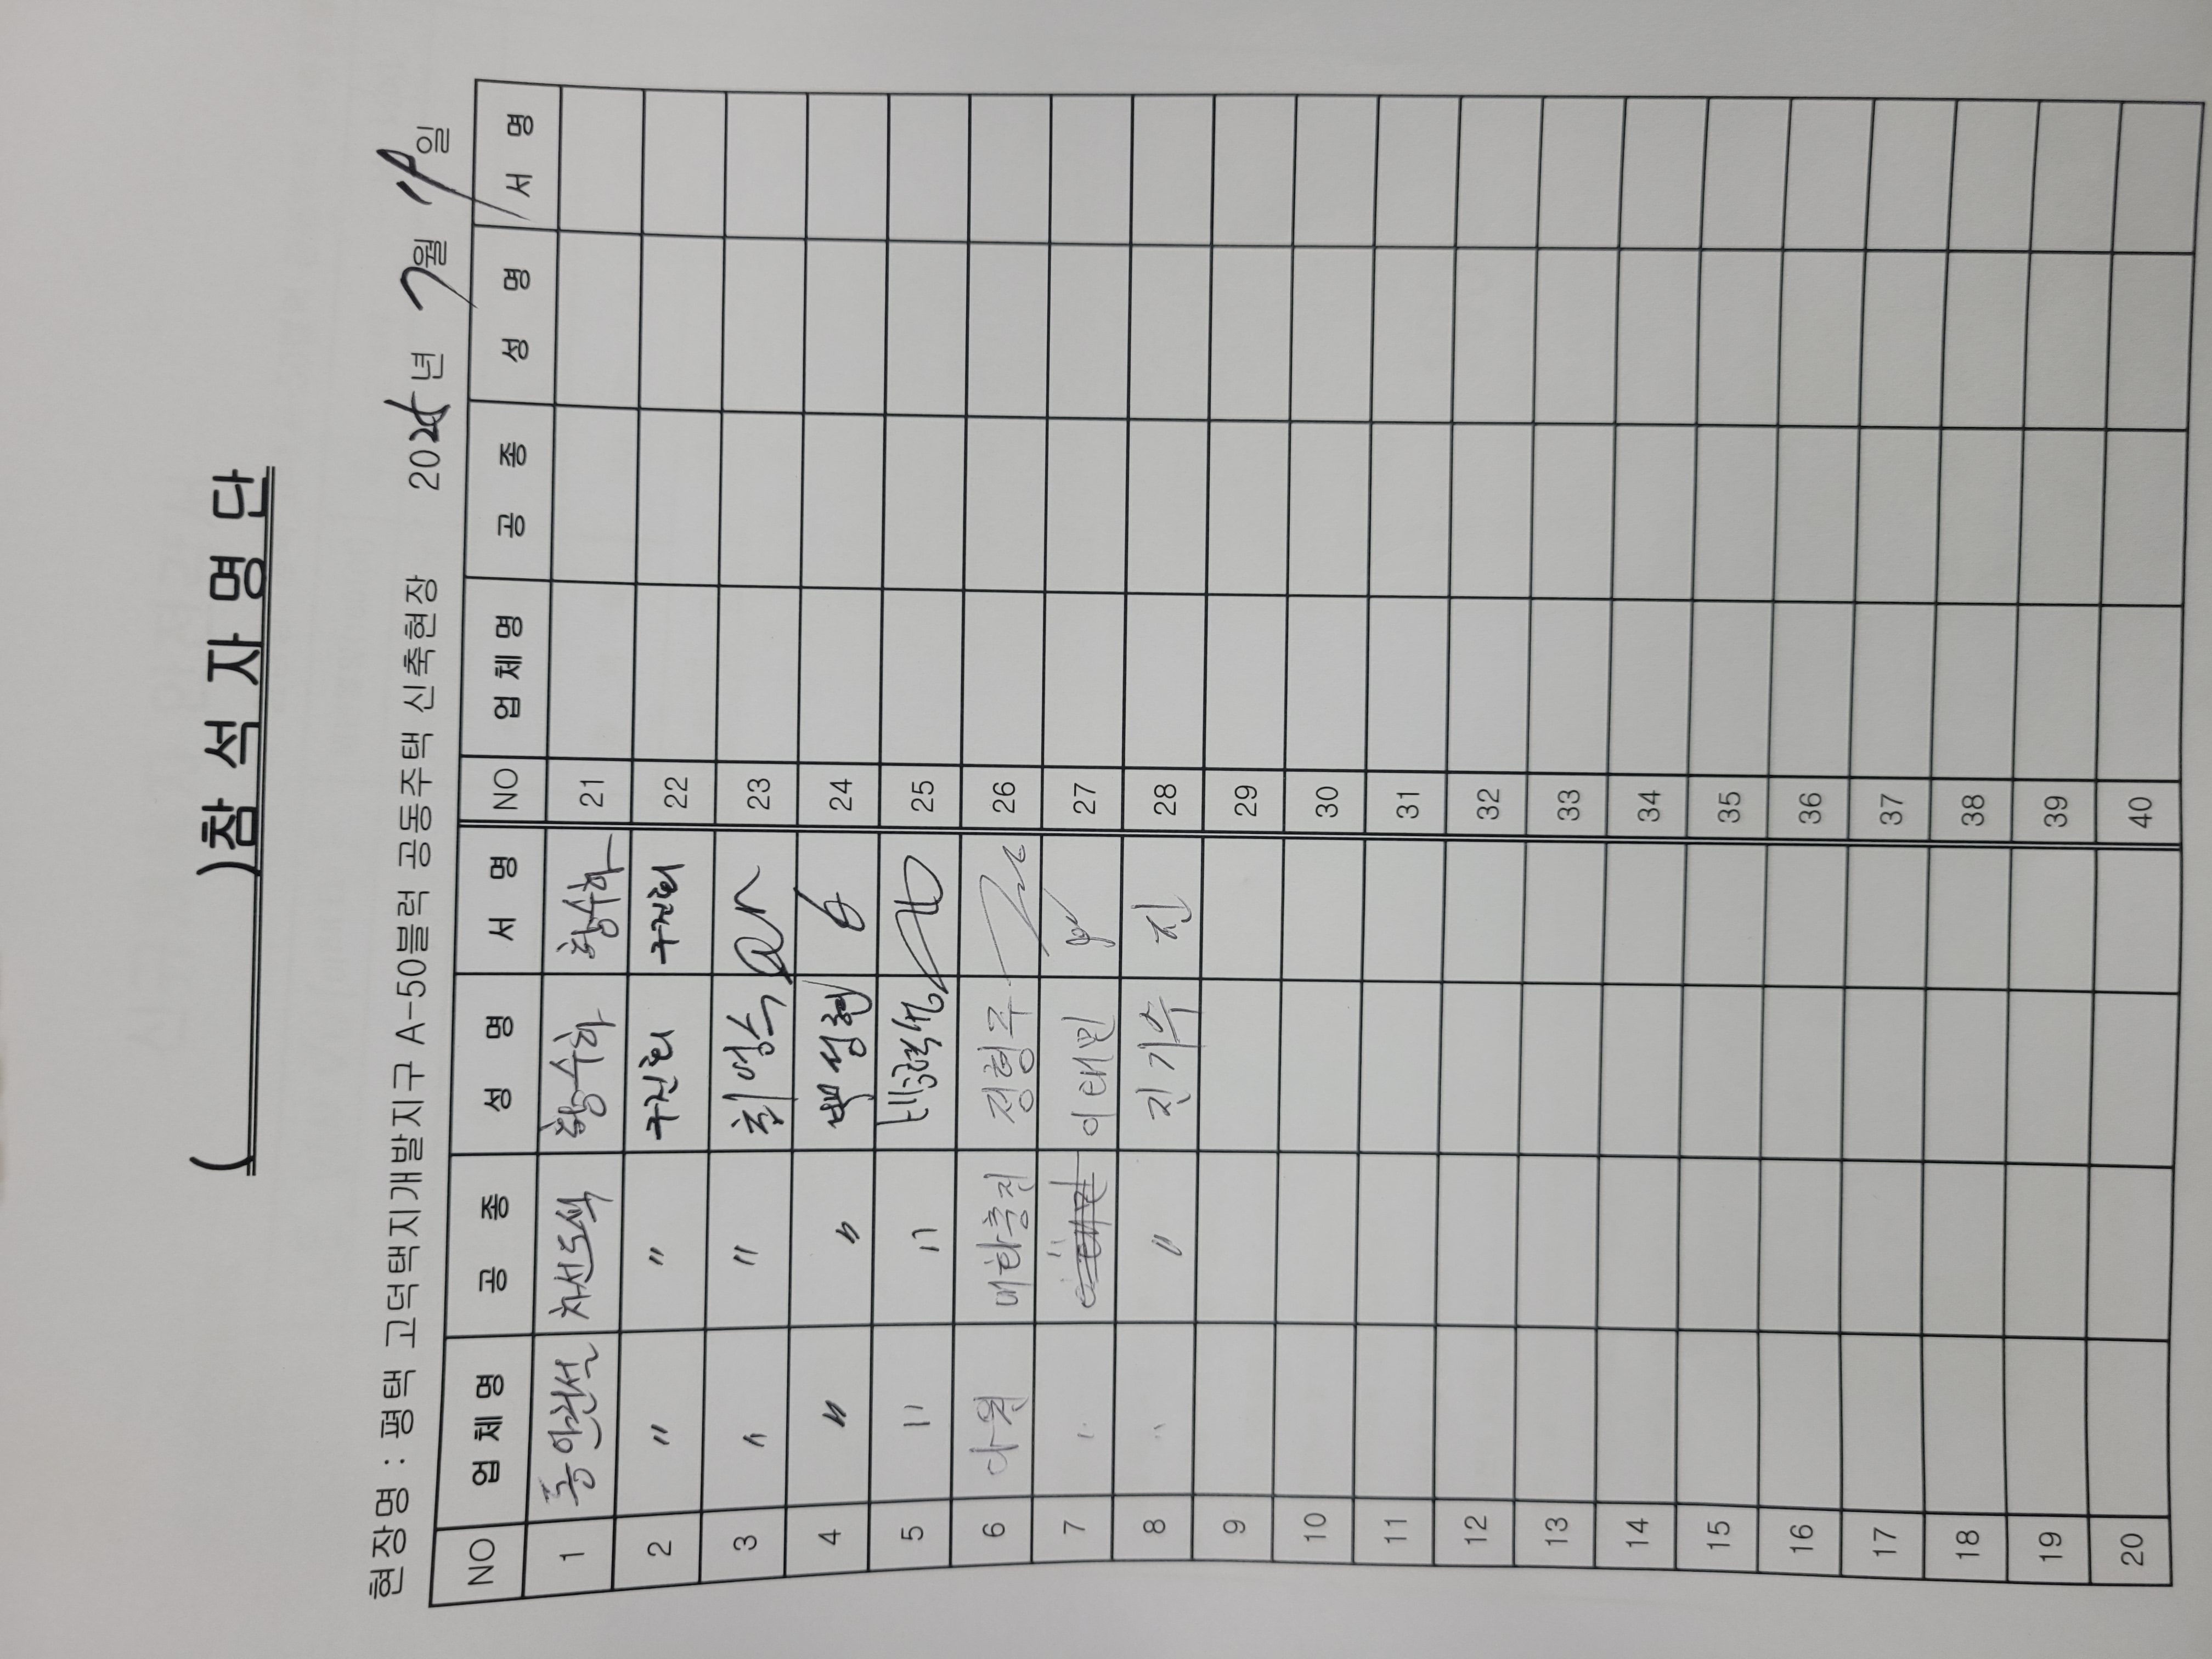 ( )참 석 자 명 단
현장명 : 평택 고덕택지개발지구 A-50블럭 공동주택 신축현장 2025년 7월 19일
NO 업 체 명 공 종 성 명 서 명 NO 업 체 명 공 종 성 명 서 명
1 차선도색 황수하 황수하 21
2 〃 〃 구진회 구진회 22
3 〃 〃 최영수 23
4 〃 〃 백성현 24
5 〃 〃 25
6 아원 정형주 26
7 〃 〃 이태민 27
8 〃 〃 진기수 진 28
9 29
10 30
11 31
12 32
13 33
14 34
15 35
16 36
17 37
18 38
19 39
20 40